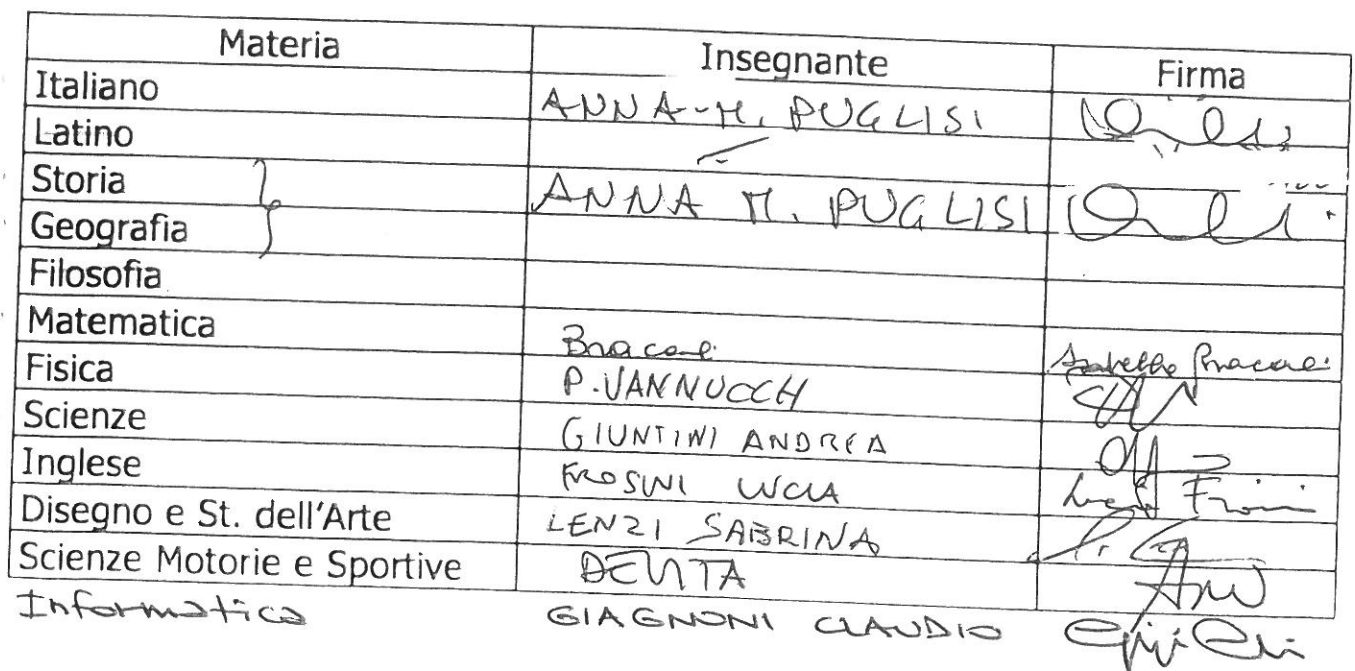 Materia Insegnante Firma
Italiano ANNA-M. PUGLISI
Latino
Storia ANNA M. PUGLISI
Geografia
Filosofia
Matematica Bracali Isabella Bracali
Fisica P. VANNUCCH
Scienze GIUNTINI ANDREA
Inglese FROSINI LUCIA
Disegno e St. dell'Arte LENZI SABRINA
Scienze Motorie e Sportive
Informatica GIAGNONI CLAUDIO